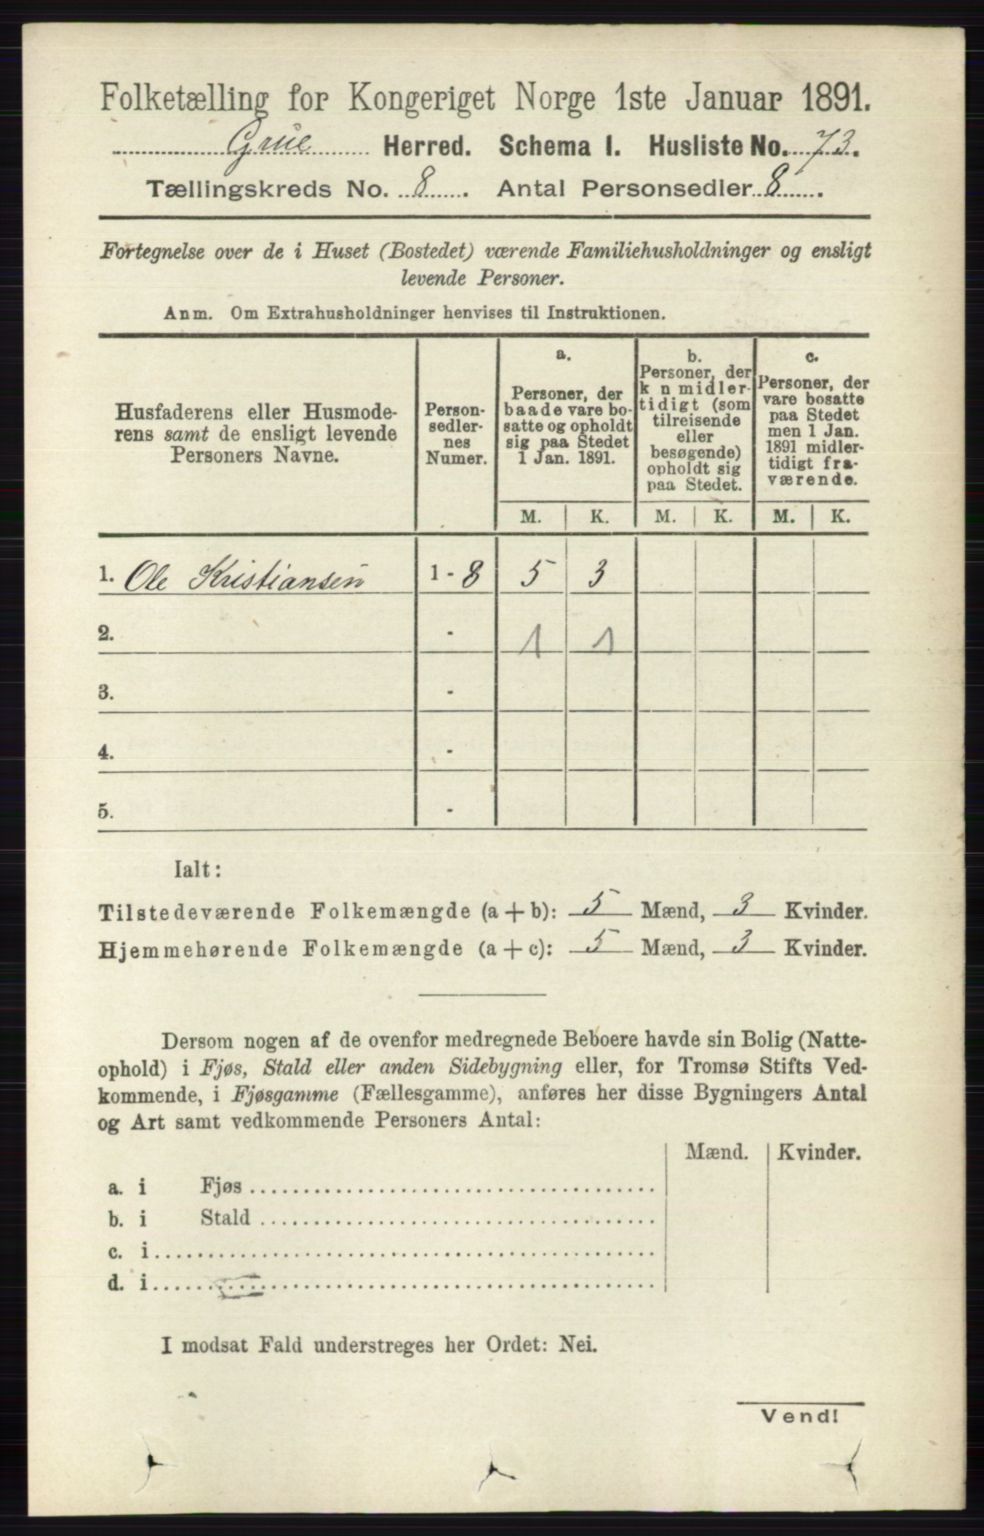 Folketælling for Kongeriget Norge 1ste Januar 1891.
Grue Herred. Schema I. Husliste No. 73.
Tællingskreds No. 8. Antal Personsedler 8.
Fortegnelse over de i Huset (Bostedet) værende Familiehusholdninger og ensligt
levende Personer.
Anm. Om Extrahusholdninger henvises til Instruktionen.
Husfaderens eller Husmode-
rens samt de ensligt levende
Personers Navne.
Person-
sedler-
nes
Numer.
a.
Personer, der
baade vare bo-
satte og opholdt
sig paa Stedet
1 Jan. 1891.
b.
Personer, der
k n midler-
tidigt (som
tilreisende
eller
besøgende)
opholdt sig
paa Stedet.
c.
Personer, der
vare bosatte
paa Stedet
men 1 Jan.
1891 midler-
tidigt fra-
værende.
M. K. M. K. M. K.
1. Ole Kristiansen 1 - 8 5 3
2. - 1 1
3. -
4. -
5. -
Ialt:
Tilstedeværende Folkemængde (a + b): 5 Mænd, 3 Kvinder.
Hjemmehørende Folkemængde (a + c): 5 Mænd, 3 Kvinder.
Dersom nogen af de ovenfor medregnede Beboere havde sin Bolig (Natte-
ophold) i Fjøs, Stald eller anden Sidebygning eller, for Tromsø Stifts Ved-
kommende, i Fjøsgamme (Fællesgamme), anføres her disse Bygningers Antal
og Art samt vedkommende Personers Antal:
Mænd. Kvinder.
a. i Fjøs
b. i Stald
c. i
d. i
I modsat Fald understreges her Ordet: Nei.
Vend!